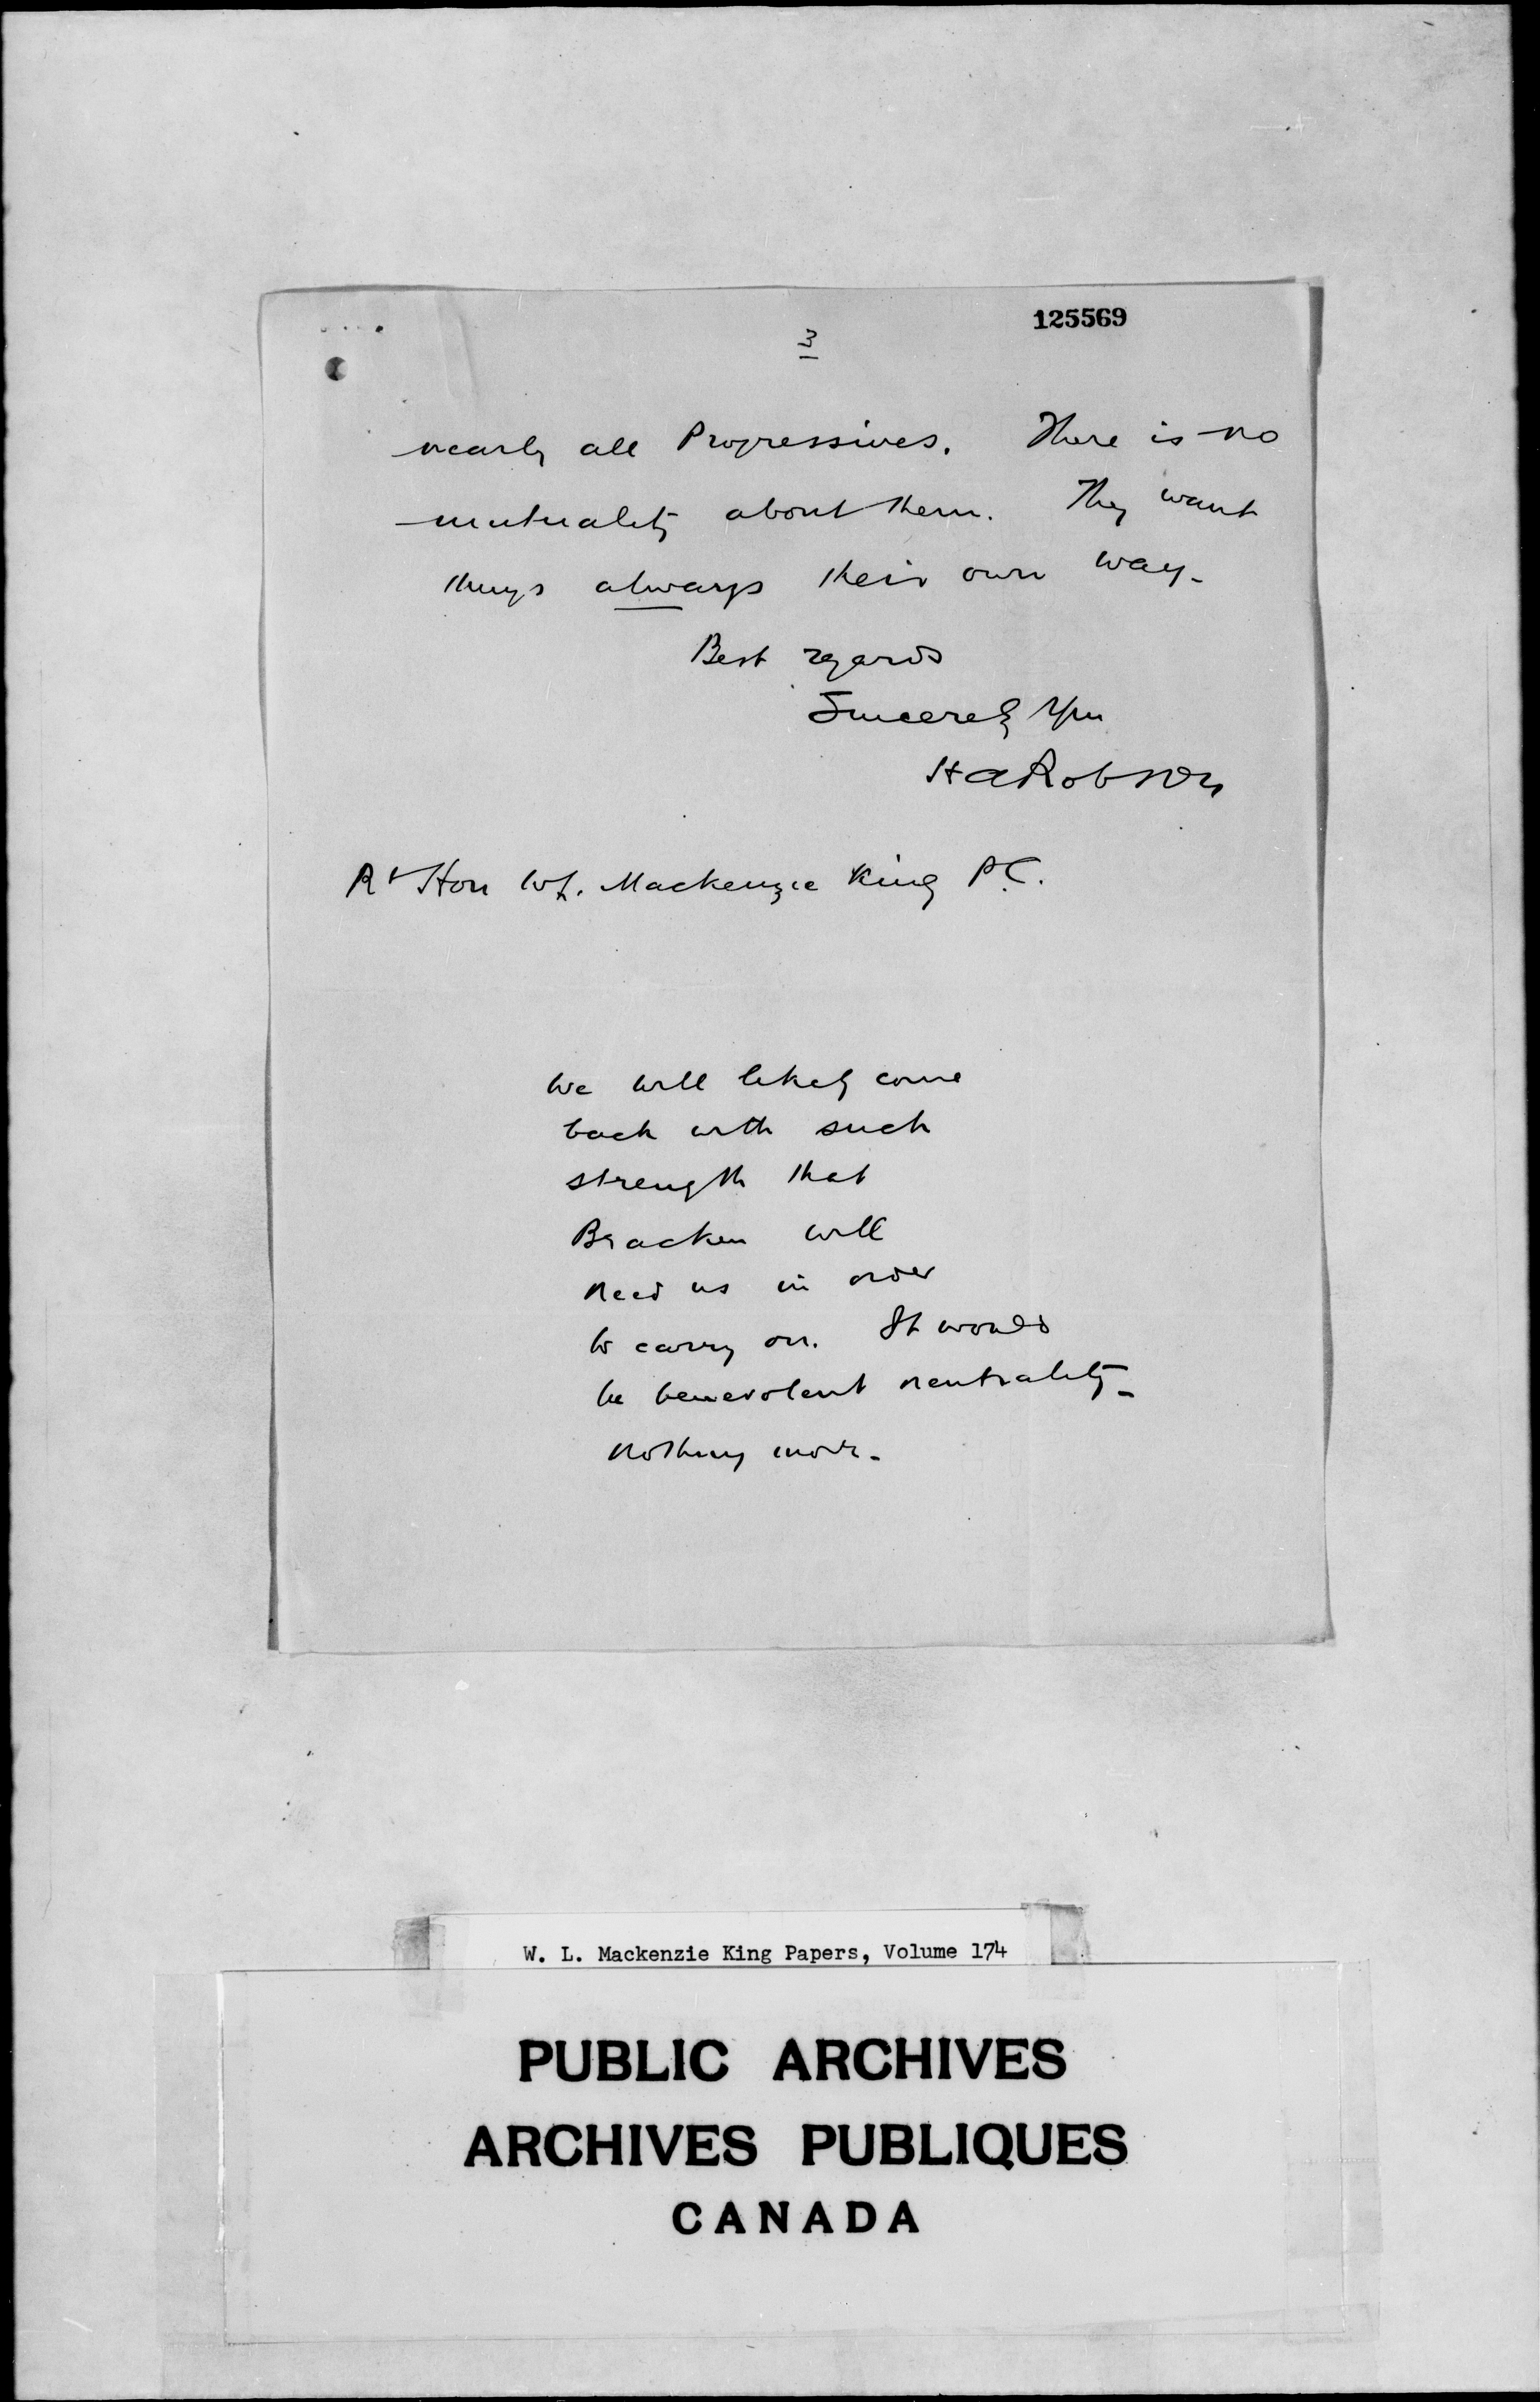 125569
3
nearly all Progressives. There is no
mutuality about them. They want
things always their own way.
Best regards
Sincerely Yours
HARobson
Rt Hon W.L. Mackenzie King P.C.
We will likely come
back with such
strength that
Bracken will
need us in order
to carry on. It would
be benevolent neutrality -
nothing more.
W. L. Mackenzie King Papers, Volume 174
PUBLIC ARCHIVES
ARCHIVES PUBLIQUES
CANADA